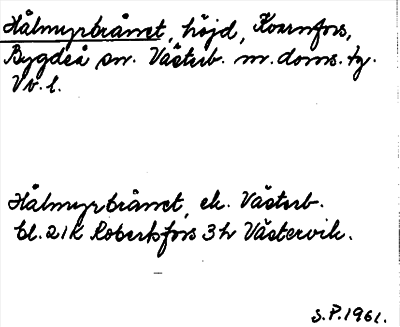 Hålmyrbrånet, höjd, Kvarnfors,
Bygdeå sn. Västerb. m. doms. tg.
Vb. l.
Hålmyrbrånet, ek. Västerb.
bl. 21K Robertsfors 3h Västervik.
S.P. 1961.